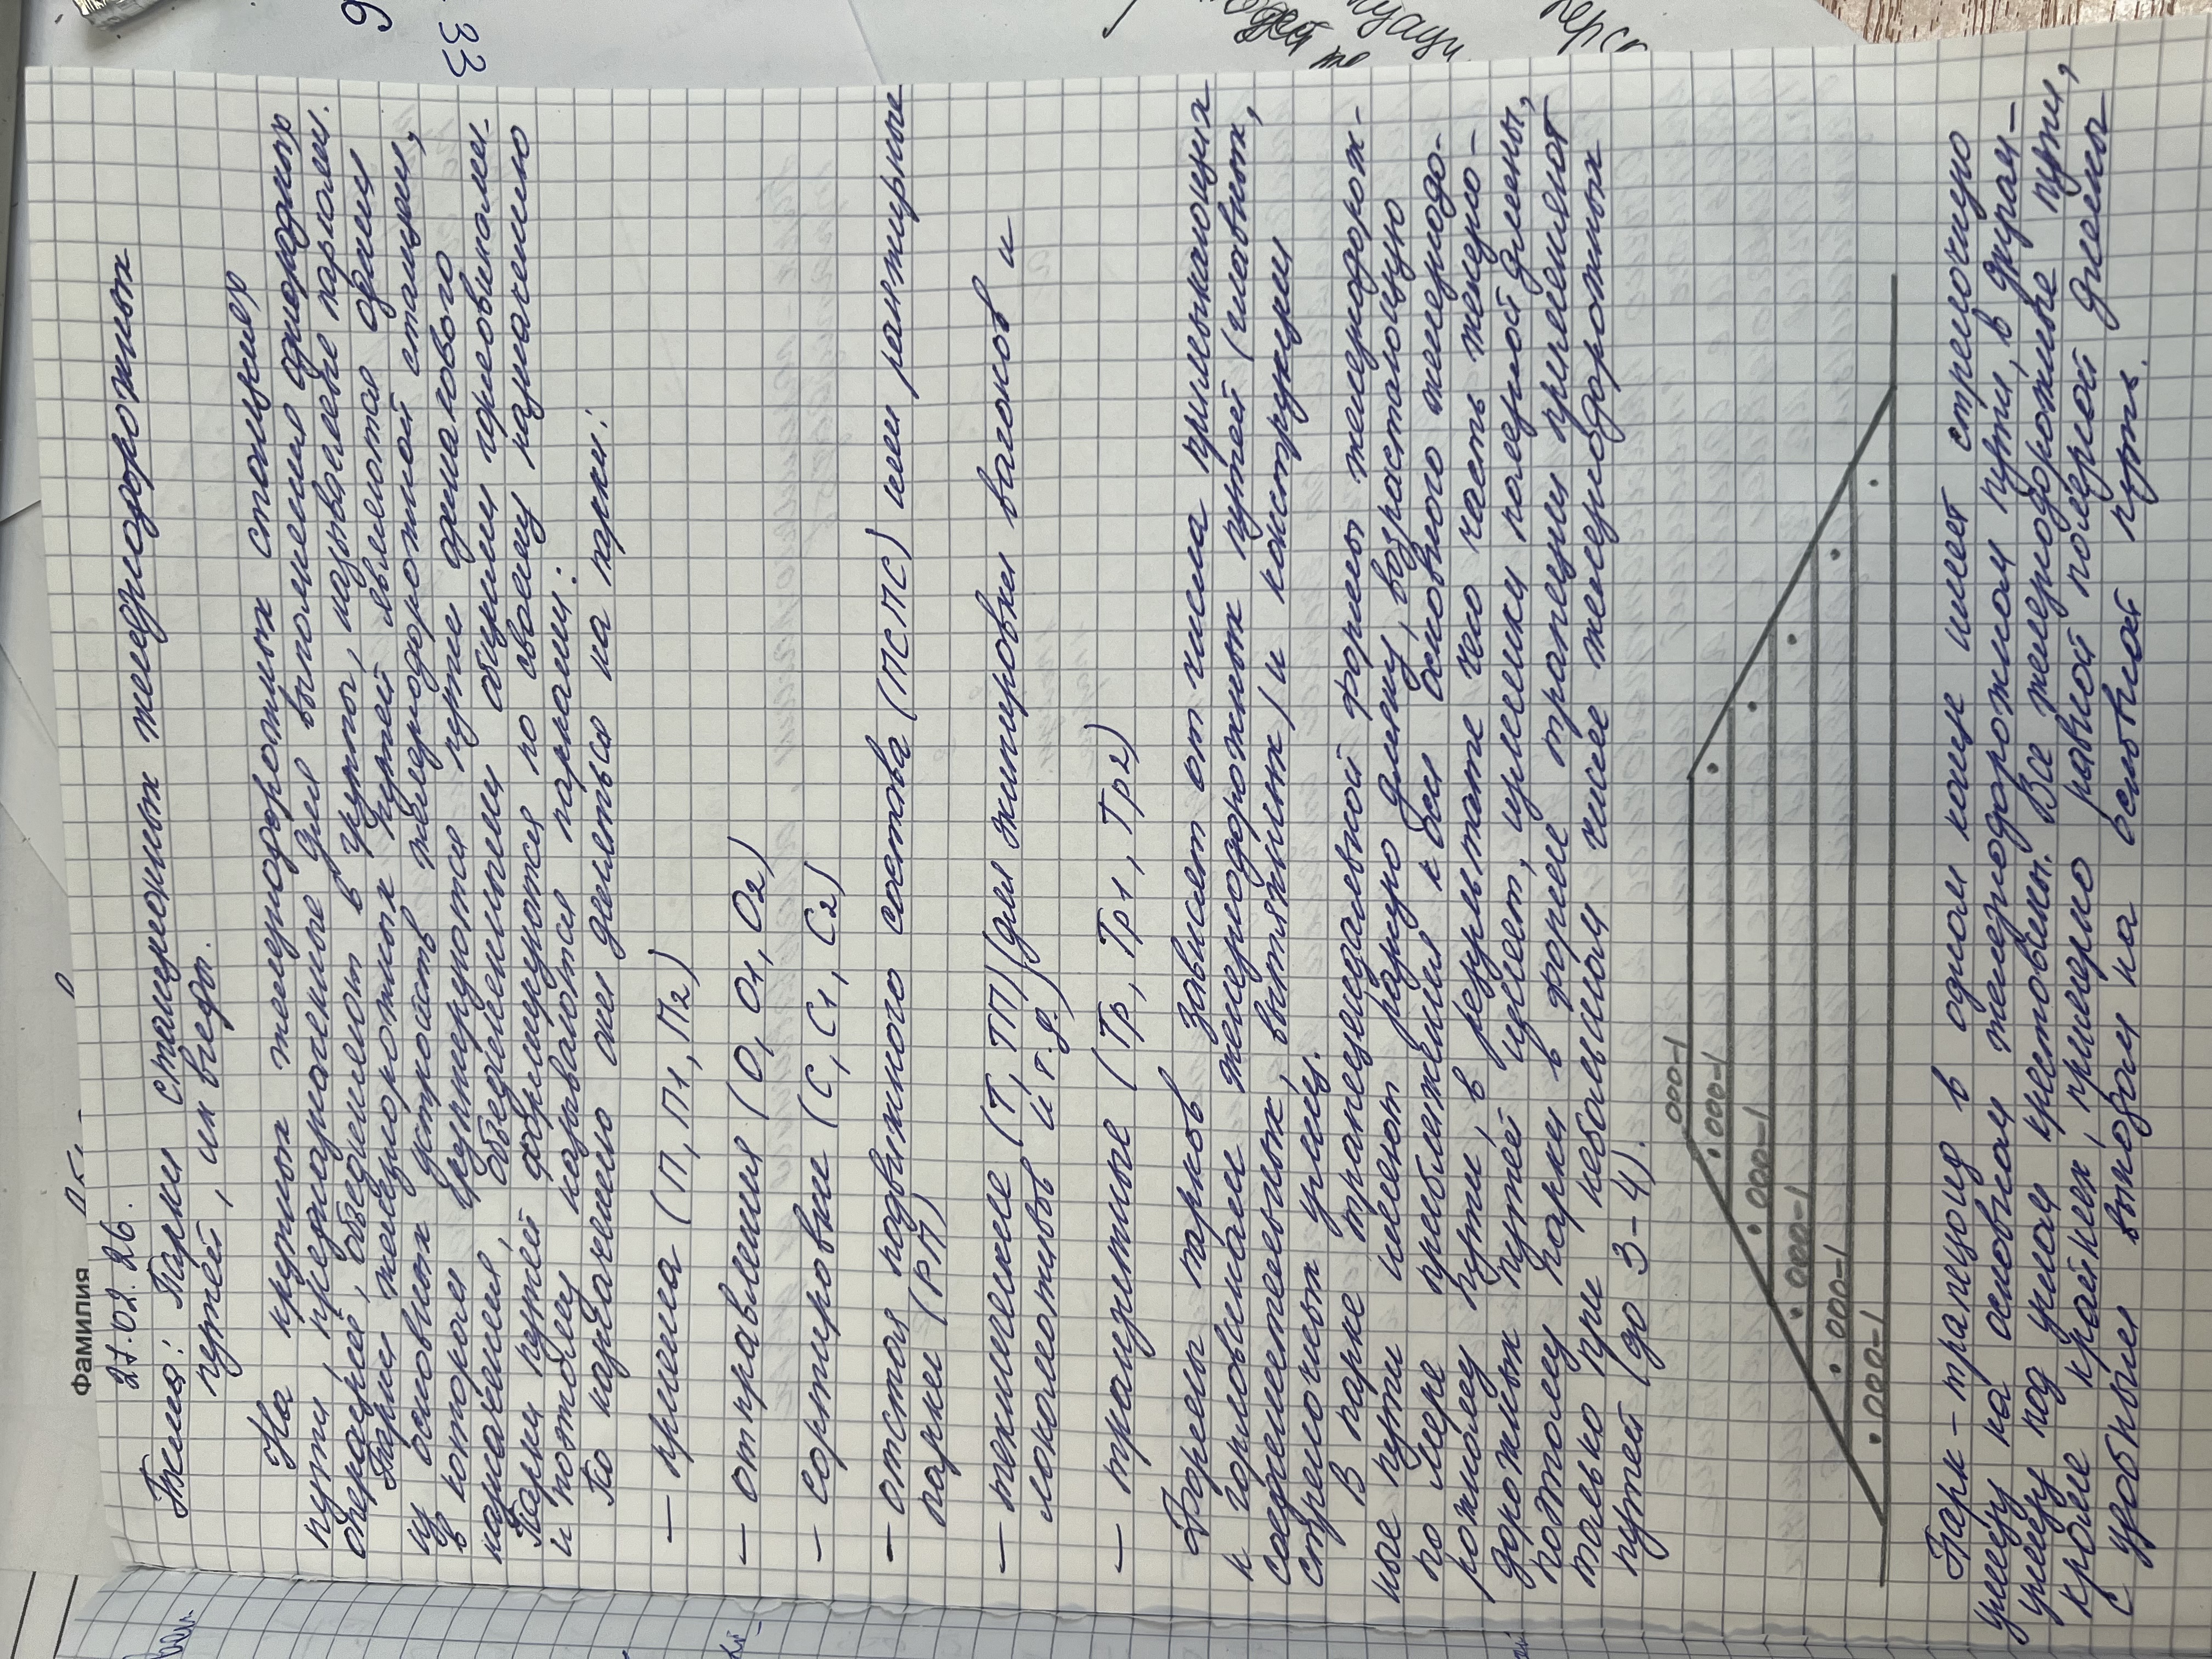 Фамилия
27.02.26.
Тема: Парки станционных железнодорожных
путей, их виды.
На крупных железнодорожных станциях
пути, предназначенные для выполнения однородных
операций, объединяют в группы, называемые парками.
Парки железнодорожных путей являются одним
из основных устройств железнодорожной станции,
в котором группируются пути одинакового
назначения, объединенными общими горловинами.
Парки путей формируются по своему назначению
и поэтому называются парками:
По назначению они делятся на парки:
— приема (П, П1, П2)
— отправления (О, О1, О2)
— сортировки (С, С1, С2)
— отстоя подвижного состава (ПСПС) или ранжирные
парки (РП)
— технические (Т, ТП) (для экипировки вагонов и
локомотивов и т.д.)
— транзитные (Тр, Тр1, Тр2)
Формы парков зависят от числа примыкающих
к горловинам железнодорожных путей (главных,
соединительных, вытяжных) и конструкции
стрелочных улиц.
В парке трапецеидальной формы железнодорож-
ные пути имеют разную длину, возрастающую
по мере приближения к оси основного железнодо-
рожному пути, в результате чего часть железно-
дорожных путей имеет излишки полезной длины,
поэтому парки в форме трапеции применяют
только при небольшом числе железнодорожных
путей (до 3-4).
000-1
000-1
000-1
000-1
000-1
000-1
Парк - трапецоид в одном конце имеет стрелочную
улицу на основном железнодорожном пути, в другом -
улицу под углом крестовины. Все железнодорожные пути,
кроме крайних, примерно равной полезной длины
с удобным выходом на основной путь.
33
6